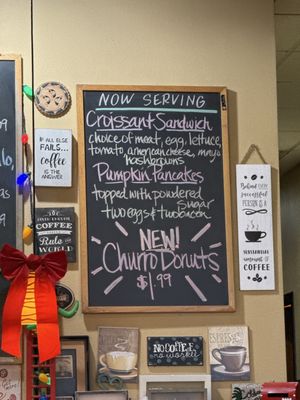 NOW SERVING
Croissant Sandwich
choice of meat, egg, lettuce,
tomato, american cheese, mayo
hashbrowns
Pumpkin Pancakes
topped with powdered
sugar
two eggs & two bacon
NEW!
Churro Donuts
$1.99
IF ALL
ELSE
FAILS...
coffee
IS THE
ANSWER
COFFEE
Rule
THE WORLD
Behind
every
successful
PERSON IS
A
SUBSTANTIAL
amount of
COFFEE
NO COFFEE
NO WORKEE
ESPRESSO